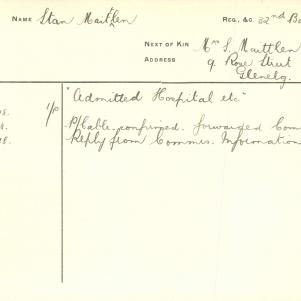 NAME Stan Maittlen REG. &c. 32nd Ba
NEXT OF KIN Mrs S. Maittlen
ADDRESS 9. Rose Street
Glenelg.
"Admitted Hospital etc"
8. P/Cable confirmed. forwarded Com
8. Reply from Commis. Information